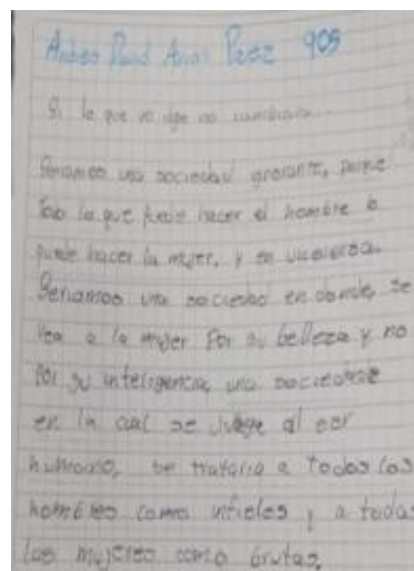 Andres David Arias Paez 905
Si lo que yo dije no
Seriamos una sociedad ignorante, porque
Todo lo que puede hacer el hombre lo
puede hacer la mujer, y en
Seriamos una sociedad en donde se
vea a la mujer Por su belleza y no
Por su inteligencia, una sociedad
en la cual se juzga al ser
humano, se trataria a todos los
hombres como infieles y a todas
las mujeres como brutas.